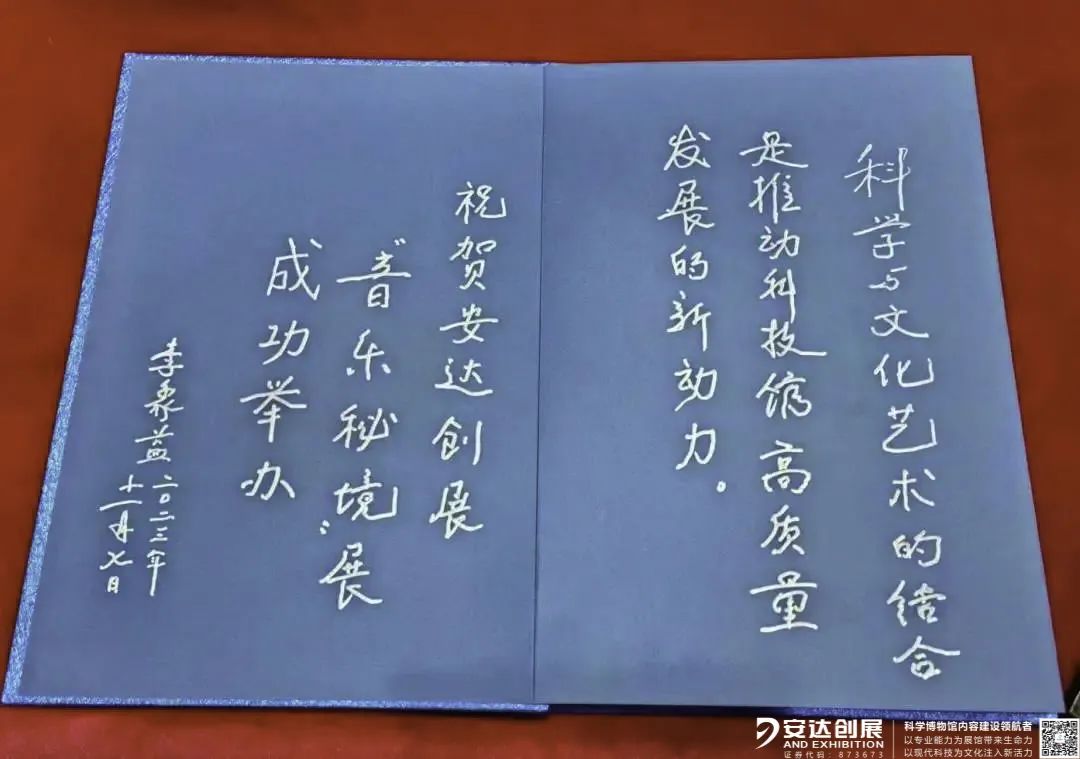 科学与文化艺术的结合
是推动科技馆高质量
发展的新动力。
祝贺安达创展
“音乐秘境”展
成功举办
李象益 二〇二三年
十一月七日
安达创展
AND EXHIBITION
证券代码：873673
科学博物馆内容建设领航者
以专业能力为展馆带来生命力
以现代科技为文化注入新活力